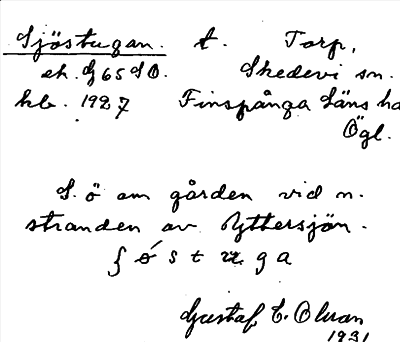 Sjöstugan. t. Torp,
ek. G 65 SO. Skedevi sn.
hb. 1927 Finspånga Läns hd
Ögl.
S. ö om gården vid n.
stranden av Yttersjön.
ʃ ǿ s t u g a
Gustaf E. Olsson
1931